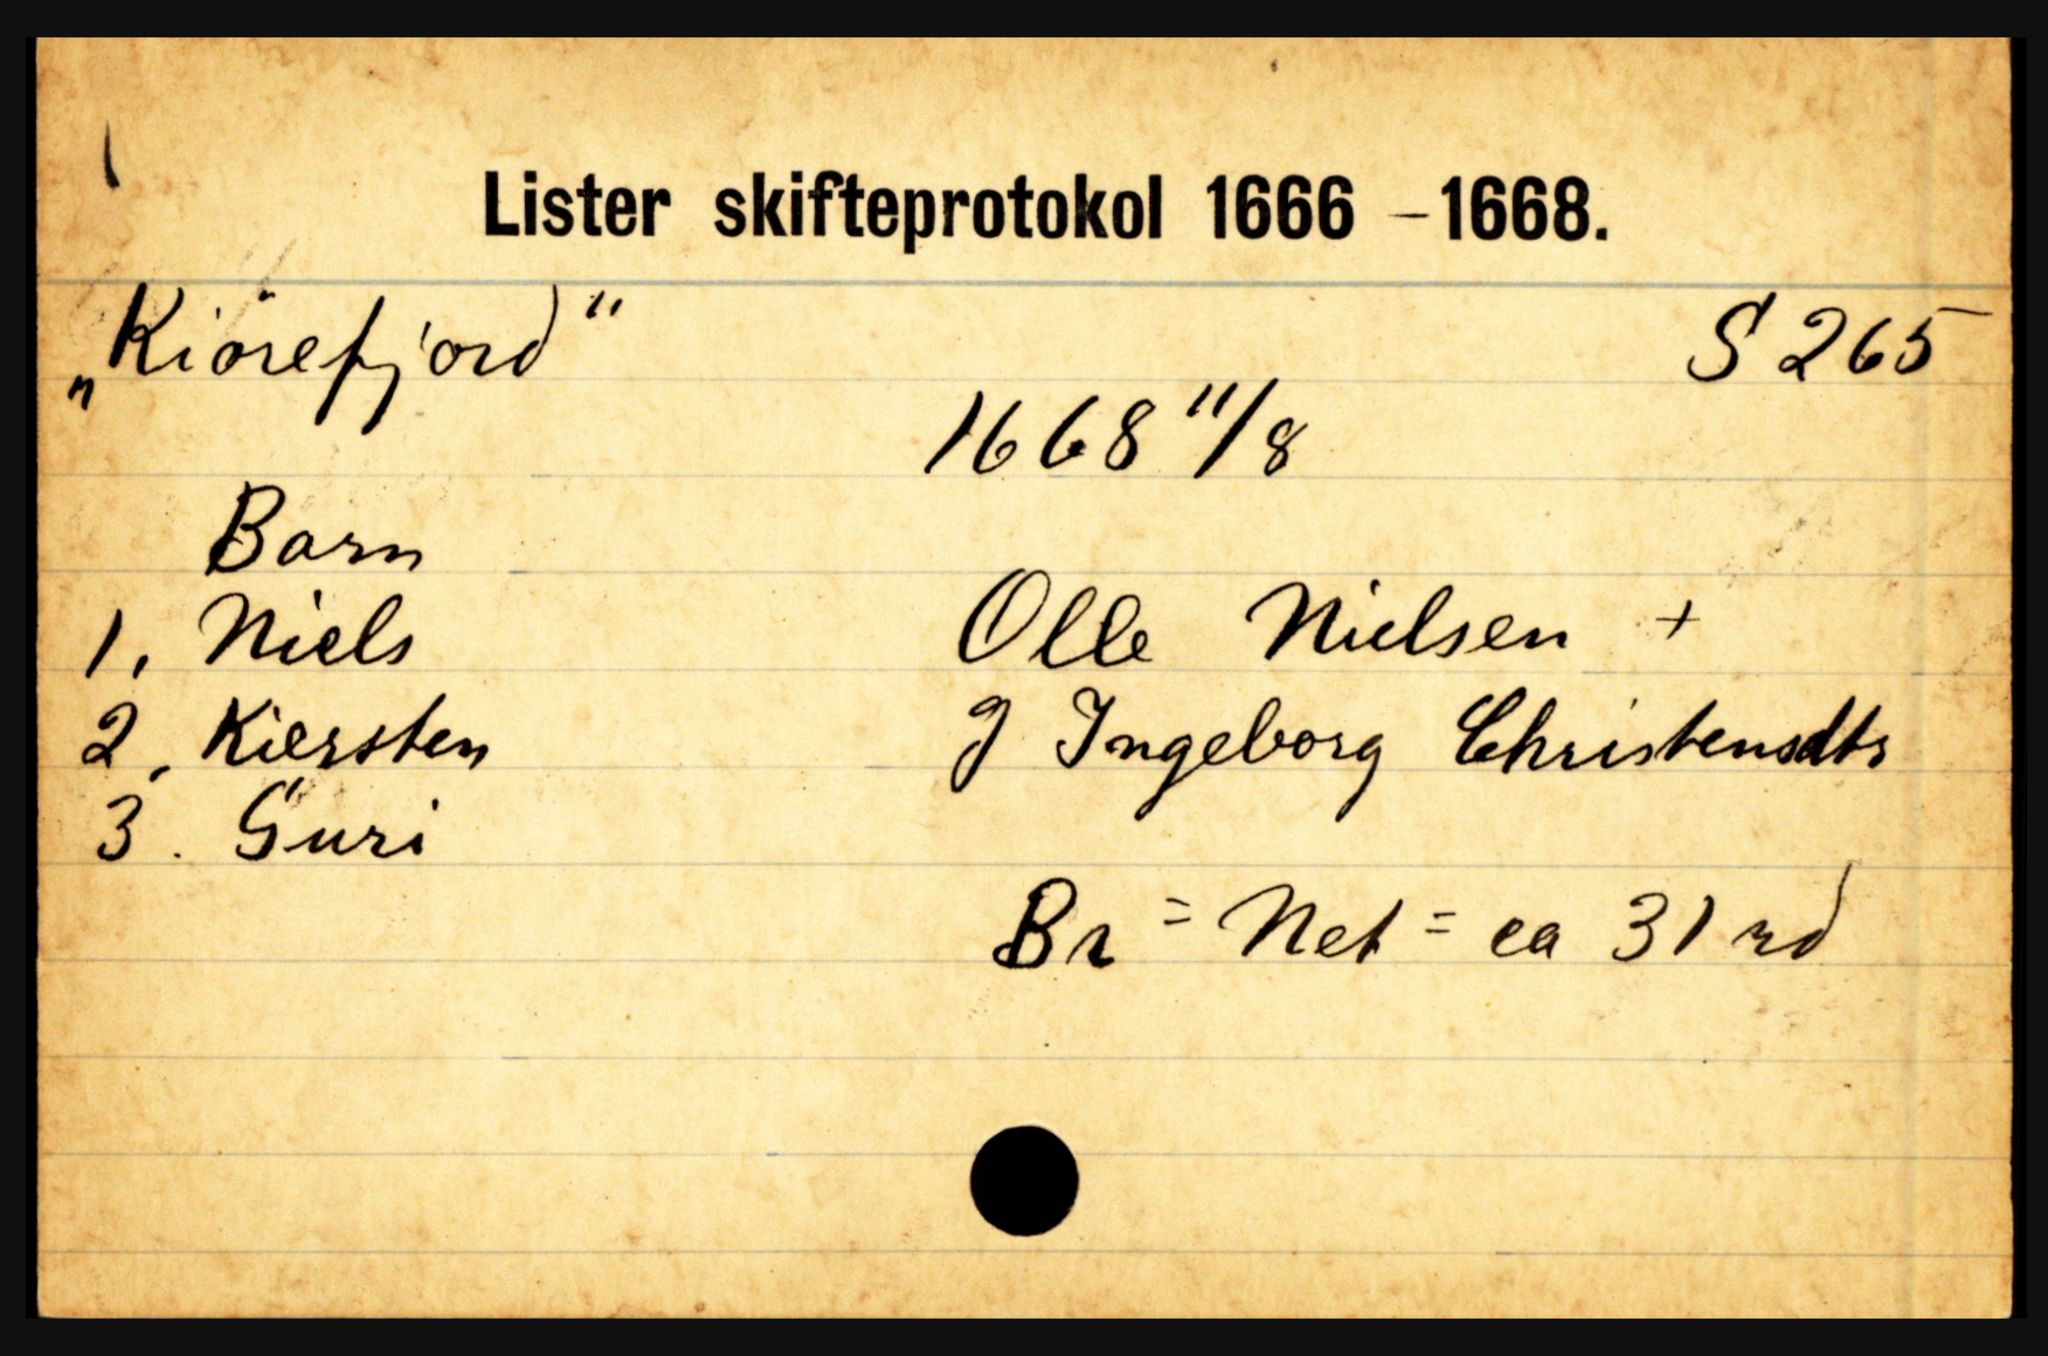 Lister skifteprotokol 1666 – 1668.
„Kiörefjord“ S 265
1668 11/8
Barn
1, Niels Olle Nielsen +
2, Kiersten g Ingeborg Christensdtr
3. Guri
Br = Net = ca 31 rd